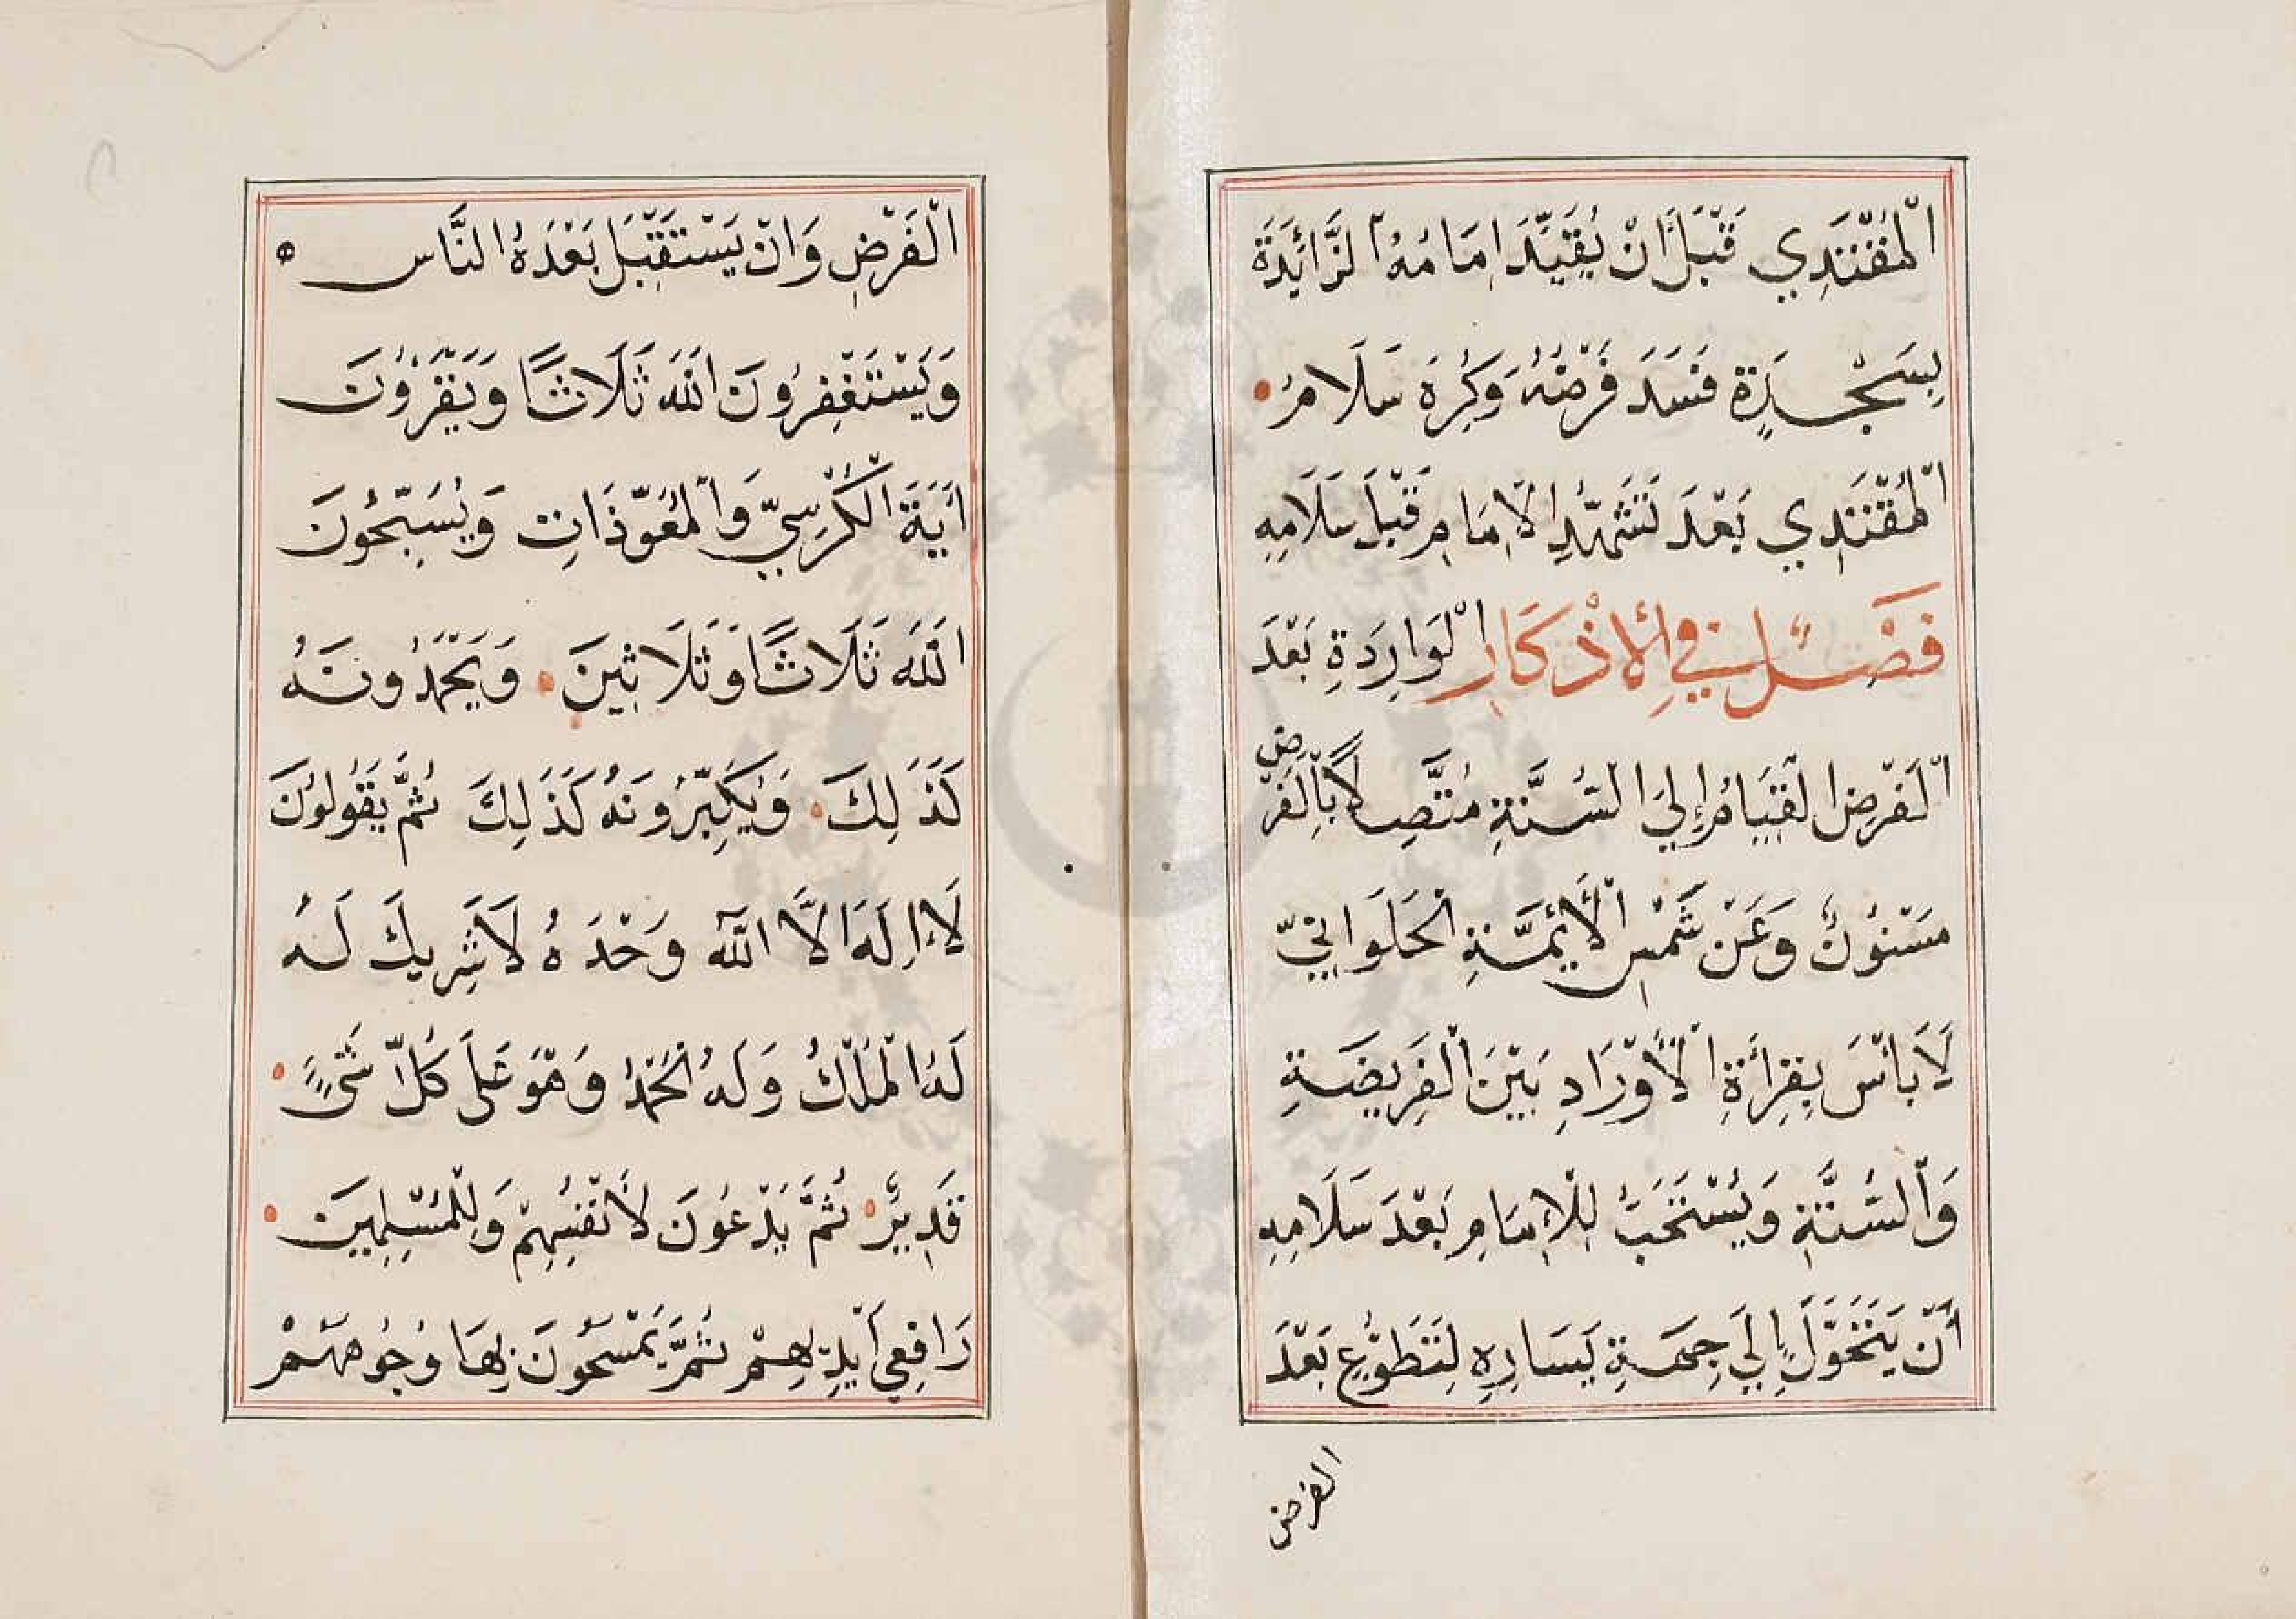 الْمُقْتَدِي قَبْلَ اَنْ يُقَيِّدَ اِمَامُهُ الزَّائِدَةَ
بِسَجْدَةٍ فَسَدَ فَرْضُهُ وَكُرِهَ سَلَامُ
الْمُقْتَدِي بَعْدَ تَشَهُّدِ الْاِمَامِ قَبْلَ سَلَامِهِ
فَصْلٌ فِي الْاَذْكَارِ الْوَارِدَةِ بَعْدَ
الْفَرْضِ الْقِيَامُ إِلَى السُّنَّةِ مُتَّصِلًا بِالْفَرْضِ
مَسْنُونٌ وَعَنْ شَمْسِ الْأَئِمَّةِ الْحَلَوَانِيّ
لَا بَأْسَ بِقِرَأَةِ الْأَوْرَادِ بَيْنَ الْفَرِيضَةِ
وَالسُّنَّةِ وَيُسْتَحَبُّ لِلْإِمَامِ بَعْدَ سَلَامِهِ
أَنْ يَتَحَوَّلَ إِلَى جِهَةِ يَسَارِهِ لِتَطَوُّعٍ بَعْدَ
الفرض
الْفَرْضِ وَانْ يَسْتَقْبِلَ بَعْدَهُ النَّاس
وَيَسْتَغْفِرُونَ اللَّهَ ثَلَاثًا وَيَقْرَؤُنَ
اَيَةَ الْكُرْسِيِّ وَالْمُعَوِّذَاتِ وَيُسَبِّحُونَ
اللَّهَ ثَلَاثًا وَثَلَاثِينَ وَيَحْمَدُونَهُ
كَذَلِكَ وَيُكَبِّرُونَهُ كَذَلِكَ ثُمَّ يَقُولُونَ
لَا اِلَهَ اِلَّا اللَّه وَحْدَهُ لَا شَرِيكَ لَهُ
لَهُ الْمُلْكُ وَلَهُ الْحَمْدُ وَهُوَ عَلَى كُلِّ شَيْءٍ
قَدِيرٌ ثُمَّ يَدْعُونَ لِأَنْفُسِهِمْ وَلِلْمُسْلِمِينَ
رَافِعِي أَيْدِيهِمْ ثُمَّ يَمْسَحُونَ بِهَا وُجُوهَهُمْ